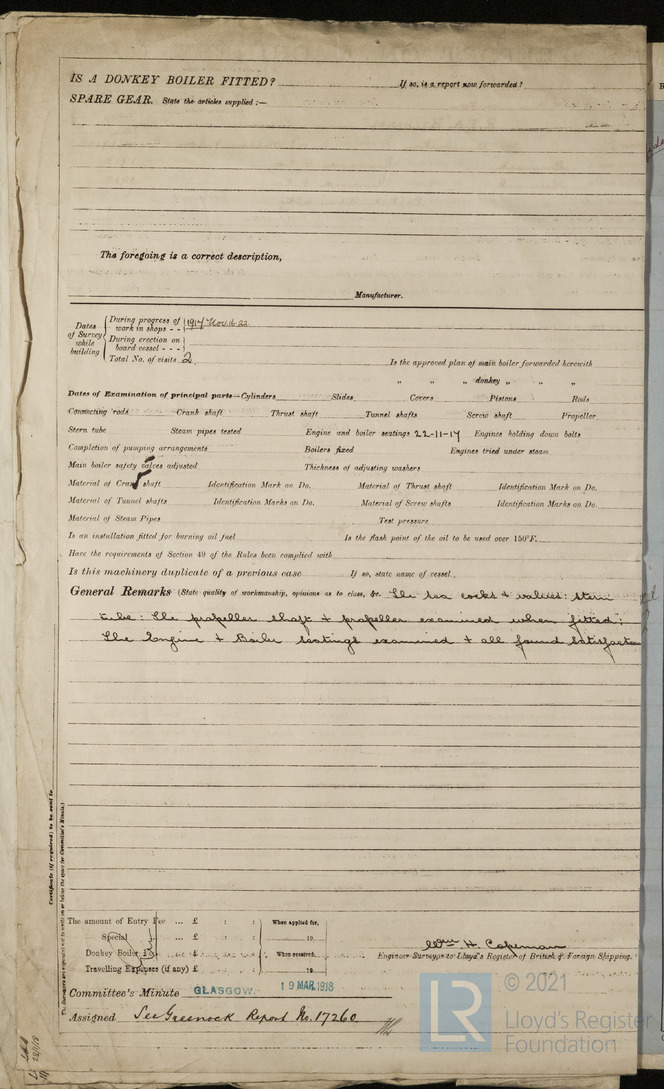 IS A DONKEY BOILER FITTED? If so, is a report now forwarded?
SPARE GEAR. State the articles supplied :—
The foregoing is a correct description,
Manufacturer.
Dates of Survey while building
During progress of work in shops - - 1917 Nov. 6. 22
During erection on board vessel - - -
Total No. of visits 2
Is the approved plan of main boiler forwarded herewith
" " " donkey " " "
Dates of Examination of principal parts—Cylinders Slides Covers Pistons Rods
Connecting rods Crank shaft Thrust shaft Tunnel shafts Screw shaft Propeller
Stern tube Steam pipes tested Engine and boiler seatings 22-11-17 Engines holding down bolts
Completion of pumping arrangements Boilers fixed Engines tried under steam
Main boiler safety valves adjusted Thickness of adjusting washers
Material of Crank shaft Identification Mark on Do. Material of Thrust shaft Identification Mark on Do.
Material of Tunnel shafts Identification Marks on Do. Material of Screw shafts Identification Marks on Do.
Material of Steam Pipes Test pressure
Is an installation fitted for burning oil fuel Is the flash point of the oil to be used over 150°F.
Have the requirements of Section 49 of the Rules been complied with
Is this machinery duplicate of a previous case If so, state name of vessel
General Remarks (State quality of workmanship, opinions as to class, &c. The sea cocks + valves: stern
tube: the propeller shaft + propeller examined when fitted;
The Engine + Boiler seatings examined + all found
Certificate (if required) to be sent to
The amount of Entry Fee ... £ : : When applied for,
Special ... £ : : 19
Donkey Boiler Fee ... £ : : When received,
Travelling Expenses (if any) £ : : 19
Wm H. Copeman
Engineer Surveyor to Lloyd's Register of British & Foreign Shipping.
Committee's Minute GLASGOW. 19 MAR. 1918
Assigned See Greenock Report No. 17260
LR
© 2021
Lloyd's Register
Foundation